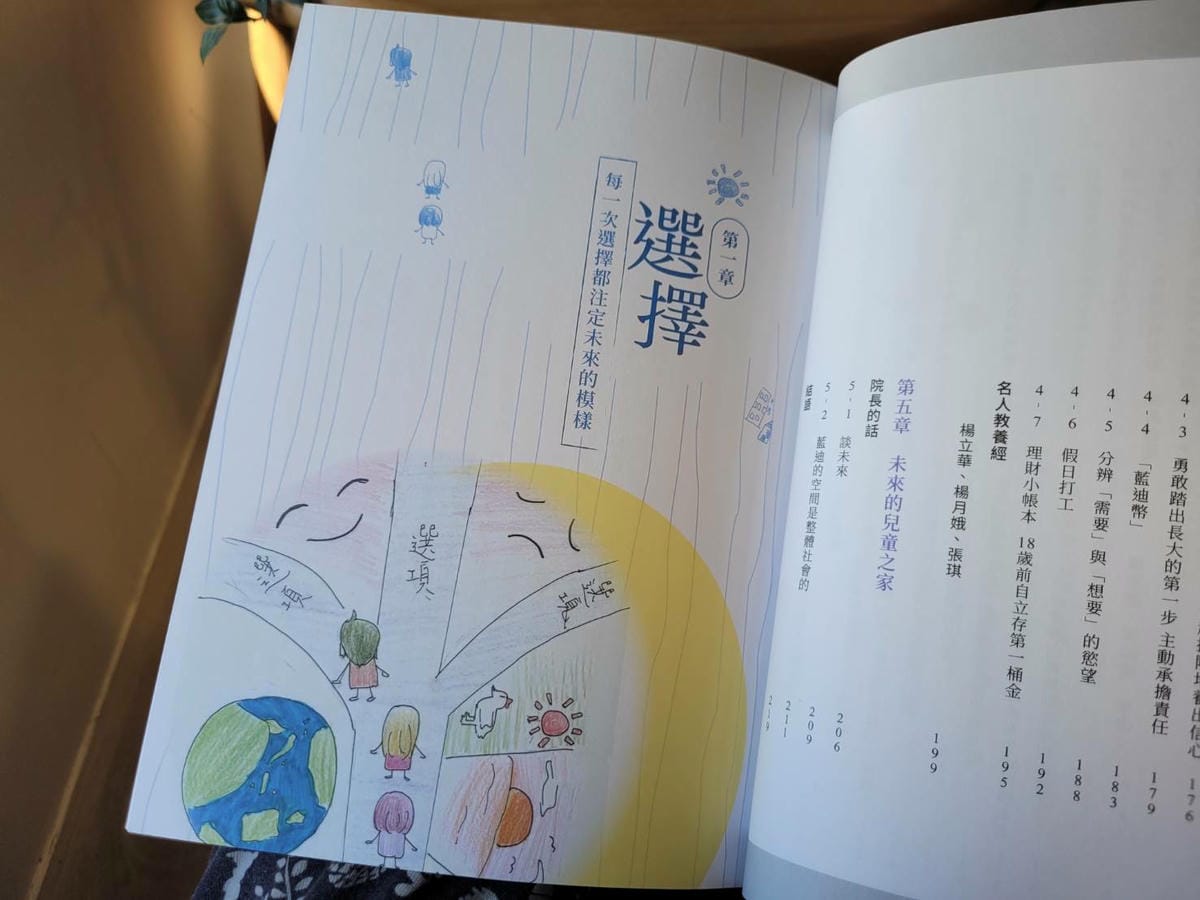 出信心 176
4-3 勇敢踏出長大的第一步 主動承擔責任 179
4-4 「藍迪幣」 183
4-5 分辨「需要」與「想要」的慾望 188
4-6 假日打工 192
4-7 理財小帳本 18歲前自立存第一桶金 195
名人教養經
楊立華、楊月娥、張琪 199
第五章 未來的兒童之家
院長的話 206
5-1 談未來 209
5-2 藍迪的空間是整體社會的 211
結語 219
第一章
選擇
每一次選擇都注定未來的模樣
選項
選項
選項